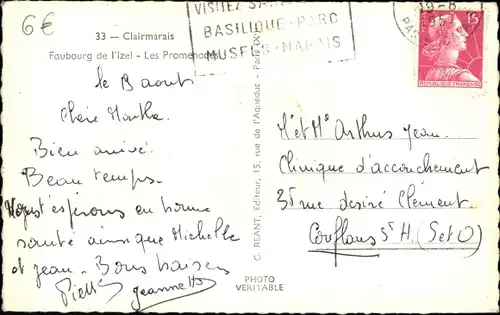 6€
33 - Clairmarais
Faubourg de l'Izel - Les Promenades
VISITEZ
BASILIQUE · PARC
MUSÉES · MARAIS
19-8
15F
REPUBLIQUE FRANÇAISE
le 13 aout
Chère Marthe
Bien arrivé.
Beau temps.
espérons en bonne
santé ainsi que Michelle
et jean. Bons baisers
Jeannette
G. REANT, Editeur, 15, rue de l'Aqueduc - Paris (X)
PHOTO
VERITABLE
M et Me Arthus Jean.
Clinique d'accouchement
35 rue desiré Clément.
Conflans St H. (S et O)